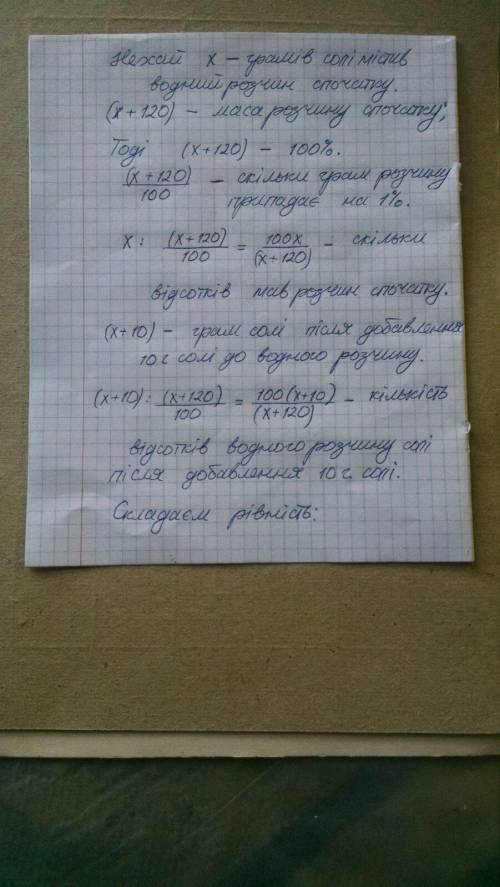 Нехай x – грамів солі містив
водний розчин спочатку.
(x+120) – маса розчину спочатку;
Тоді (x+120) – 100%.
(x+120)/100 – скільки грам розчину
припадає на 1%.
x : (x+120)/100 = 100x/(x+120) – скільки
відсотків мав розчин спочатку.
(x+10) – грам солі після добавлення
10 г солі до водного розчину.
(x+10) : (x+120)/100 = 100(x+10)/(x+120) – кількість
відсотків водного розчину солі
після добавлення 10 г. солі.
Складаєм рівність: